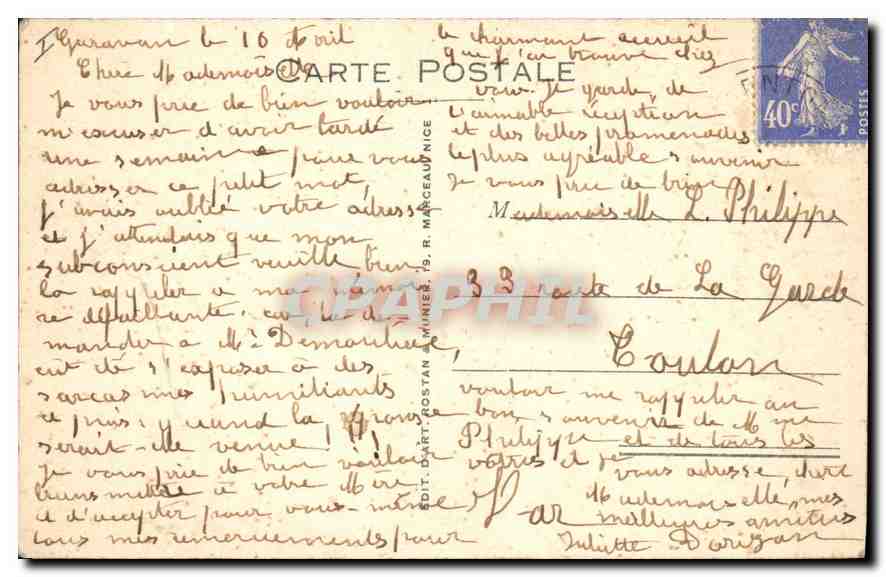 Garavan le 10 Avril
Chère Mademoiselle
Je vous prie de bien vouloir
m'excuser d'avoir tardé
une semaine pour vous
adresser ce petit mot,
j'avais oublié votre adresse
et j'attendais que mon
subconscient veuille bien
la rappeler à ma mémoi
re défaillante. car la de
mander à Mr Demoulière,
eut été s'exposer à des
sarcasmes humiliants
et puis, quand la réponse
serait-elle venue! !!
Je vous prie de bien vouloir
transmettre à votre Mère
et d'accepter pour vous-même
tous mes remerciements pour
le charmant accueil
que j'ai trouvé chez
vous. Je garde, de
l'aimable réception
et des belles promenades
le plus agréable souvenir
Je vous prie de bien
vouloir me rappeler au
bon souvenir de Mme
Philippe et de tous les
vôtres et je
vous adresse, chère
Mademoiselle, mes
meilleures amitiés
Juliette Dorizon
CARTE POSTALE
Mademoiselle L. Philippe
33 route de La Garde
Toulon
Var
EDIT. D'ART. ROSTAN & MUNIER, 19, R. MARCEAU NICE
40c
POSTES
CPAPHIL